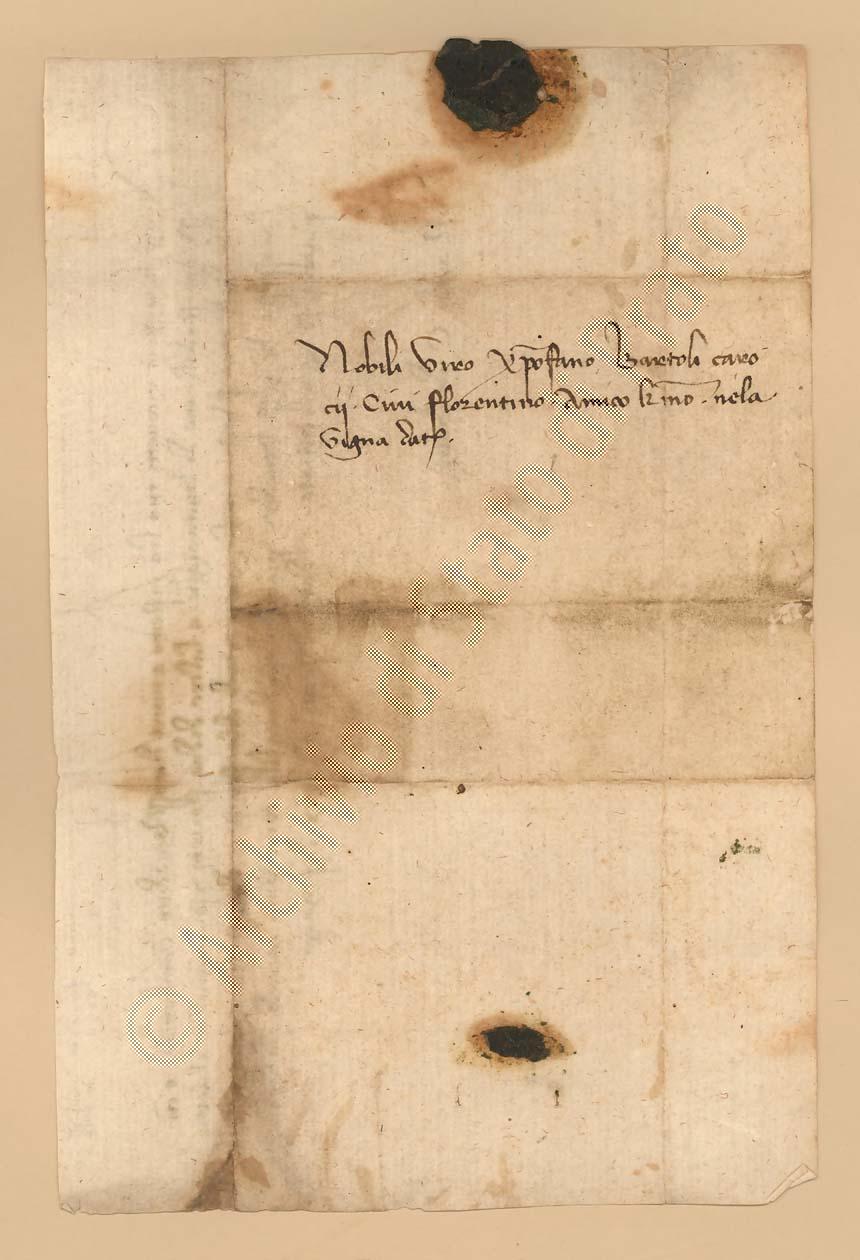 Nobili Viro Xpofano Bartoli caro
cij. Civi florentino. Amico kr̅mo. nela
Vigna dat.
© Archivio di Stato di Prato